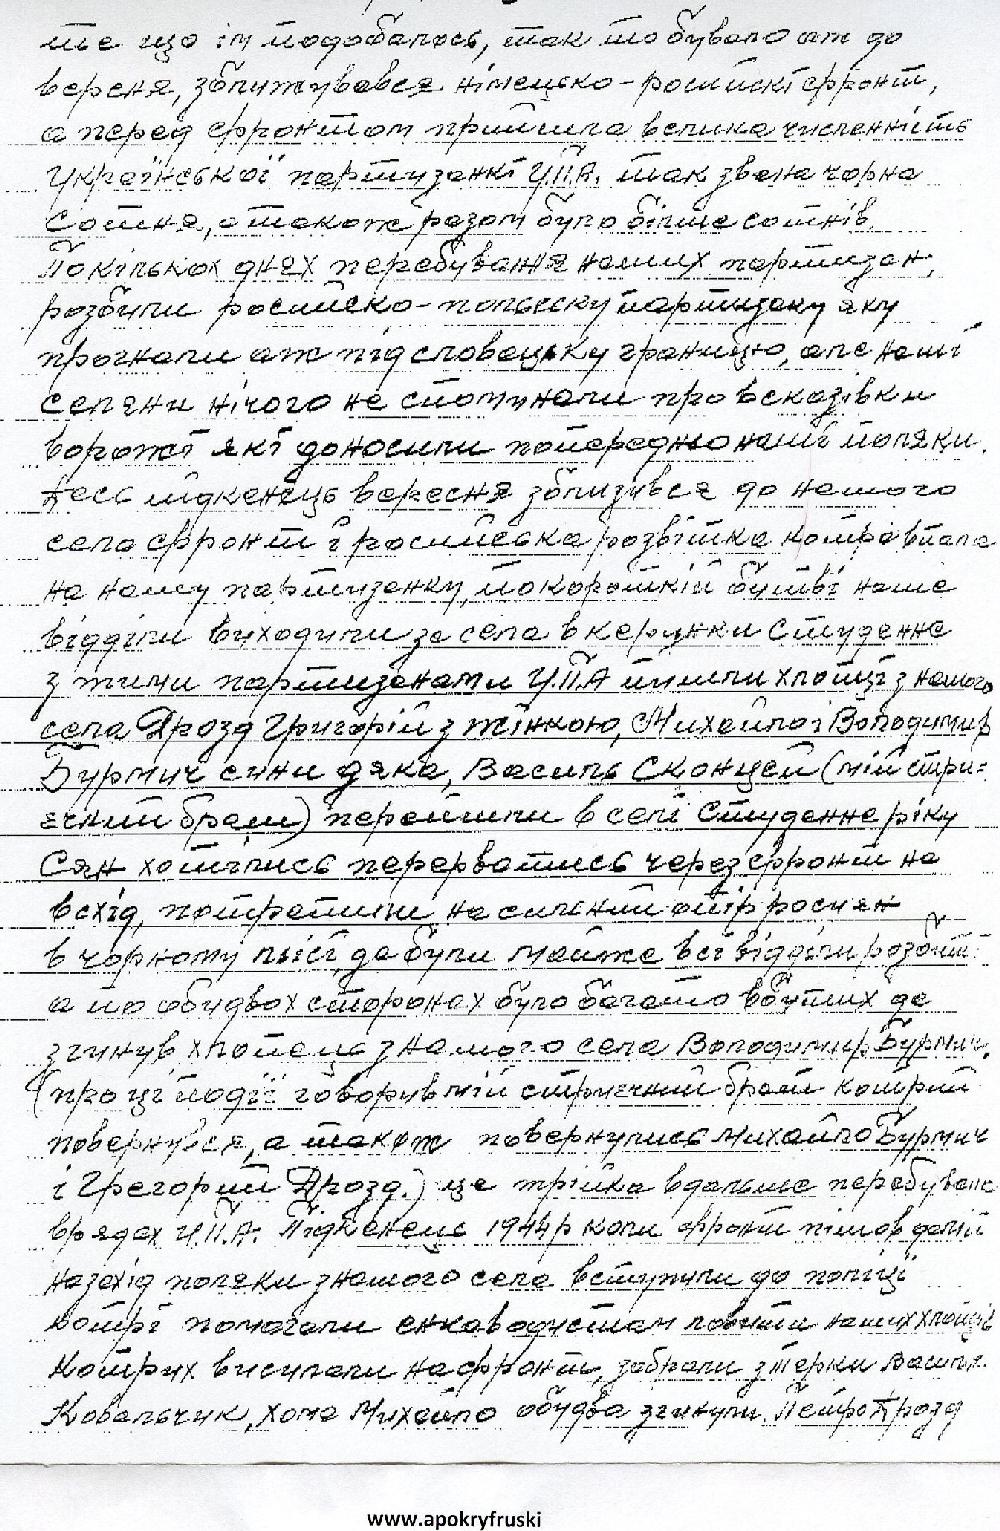 те що їм подобалось, так то бувало аж до
вересня, зближувався німецько-росийскі фронт,
а перед фронтом прийшла велика численність
Української партизанкі У.П.А. так звана чорна
сотня, а також разом було більше сотнів.
По кількох днях перебування наших партизан,
розбили росийско-польську партизаку яку
прогнали аж під словацьку границю, але наші
селяни нічого не споминали про вскозівки
ворожі які доносили попередньо наші поляки.
Десь підкенець вересня зблизився до нашого
села фронт і російська розвітка котра впала
на нашу партизанку, по короткій битві наше
відділи виходили зе села в керунки Студенне
з тими партизанами У.П.А пішли хлопці з нашого
села Дрозд Григорій з жінкою, Михайло і Володимир
Бурмич сини дяка, Василь Сконцей (мій стри-
ечний брат) перейшли в селі Студенне ріку
Сян хотілись перерватись через фронт на
всхід, потрапили на силений опір росиян
в чорному лісі, де були майже всі відділи розбиті
а по обидвох сторонах було багато вбитих де
згинув хлопець з нашого села Володимир Бурмич.
(про ці події говорив мій стриечний брат котрий
повернувся, а також повернулись Михайло Бурмич
і Грегорий Дрозд.) це трійка вдальше перебувала
врядах У.П.А. Підкенець 1944р коли фронт пішов далій
на захід поляки з нашого села вступили до поліції
котрі помогали енкаводистам ловити наших хлопців
Котрих висилали на фронт, забрали з жерки Василь
Ковальчик, хома Михайло обидва згинули. Петро Дрозд
www.apokryfruski